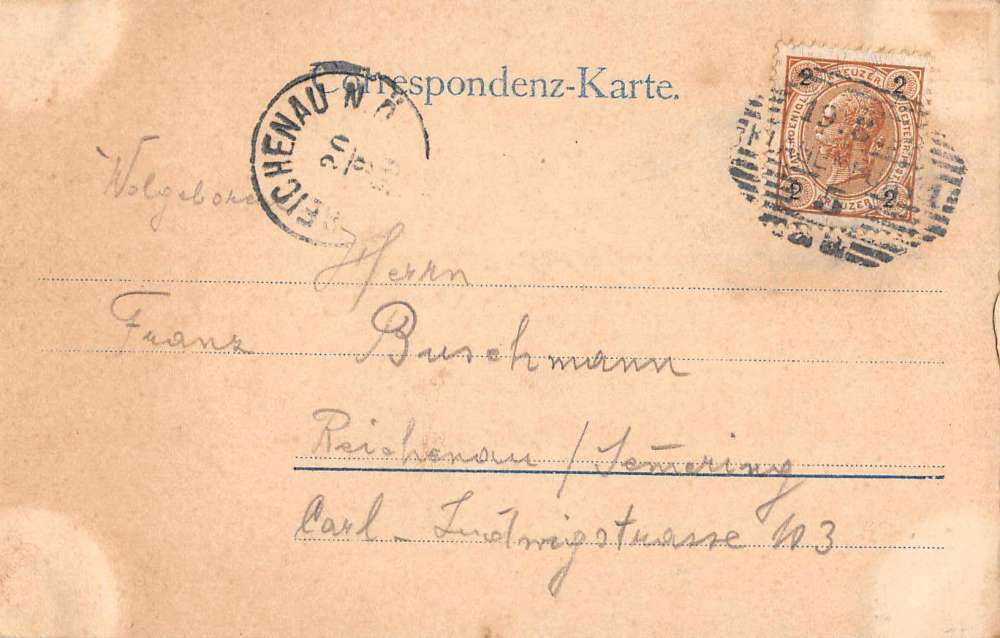 Correspondenz-Karte.
REICHENAU N.Ö
2 KREUZER 2
19.8.
2 KREUZER 2
Wolgeboren
Herrn
Franz Buschmann
Reichenau / Sem̄ering
Carl-Ludwigstrasse 113